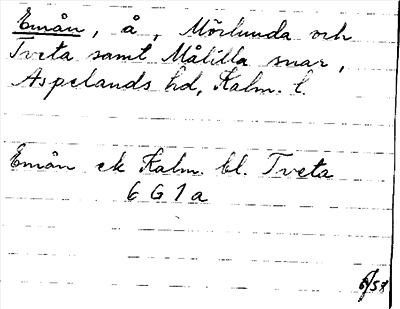 Emån, å, Mörlunda och
Tveta samt Målilla snar,
Aspelands hd, Kalm. l.
Emån ek Kalm. bl. Tveta
6 G 1 a
/58